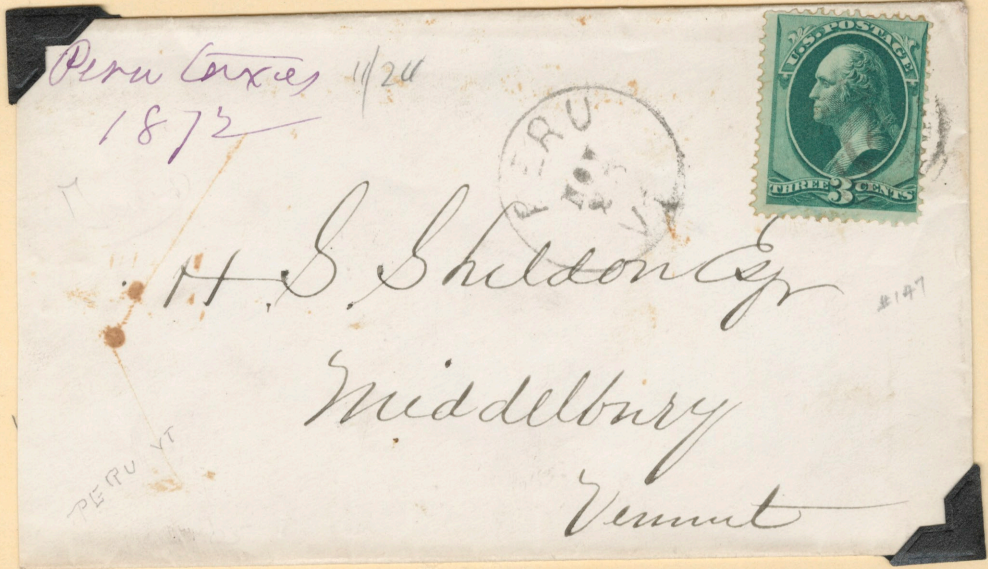 Peru taxes 11/24
1872
PERU
NOV
25
VT
U.S. POSTAGE
THREE 3 CENTS
H. S. Sheldon Esqr
#147
Middelbury
PERU VT
Vermont